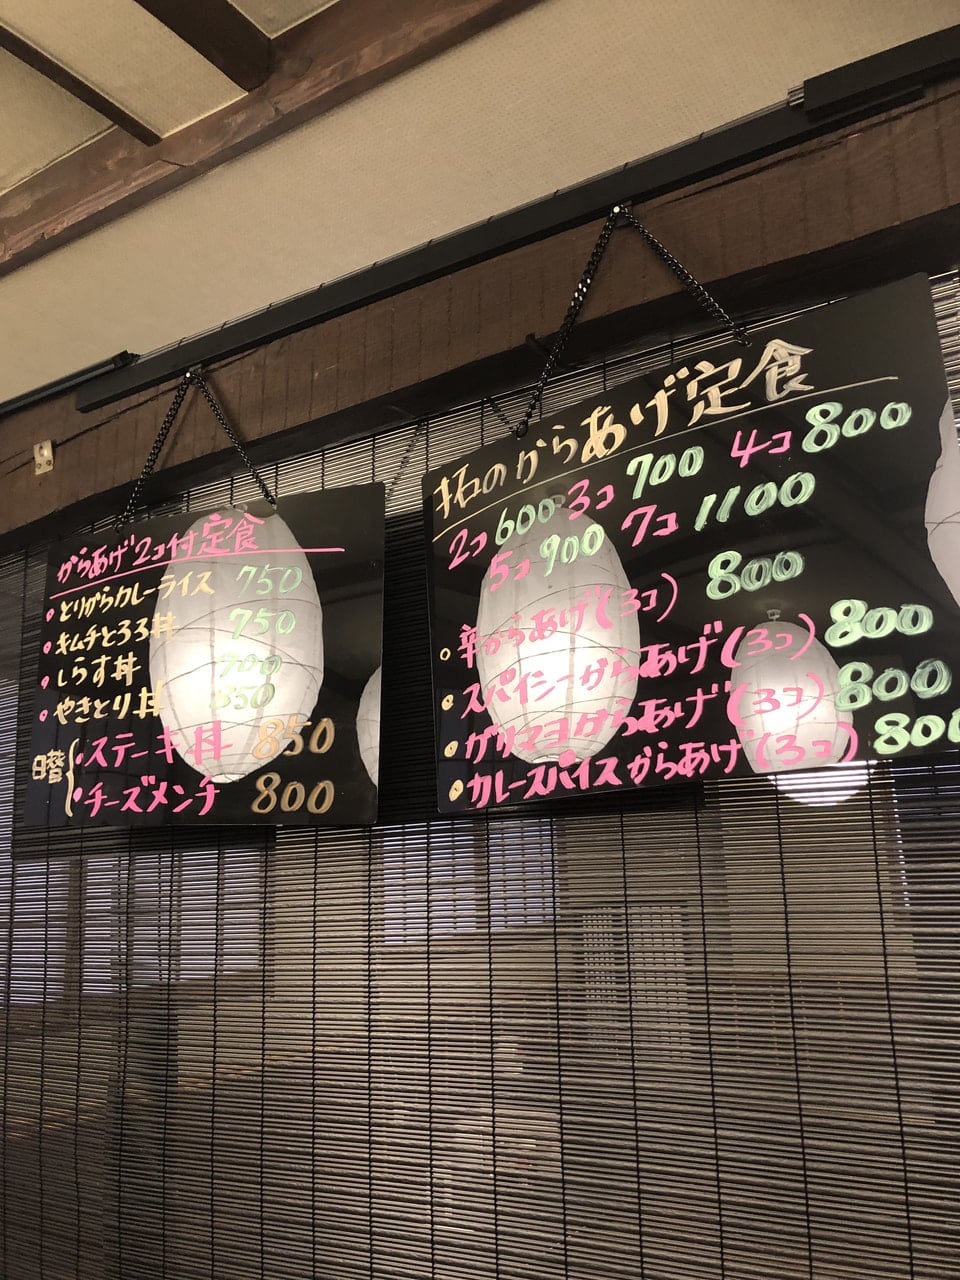 からあげ2コ付定食
とりがらカレーライス 750
キムチとろろ丼 750
しらす丼 700
やきとり丼 850
日替
ステーキ丼 850
チーズメンチ 800
拓のからあげ定食
2コ 600 3コ 700 4コ 800
5コ 900 7コ 1100
辛からあげ(3コ) 800
スパイシーからあげ(3コ) 800
ゲリマヨからあげ(3コ) 800
カレースパイスからあげ(3コ) 800